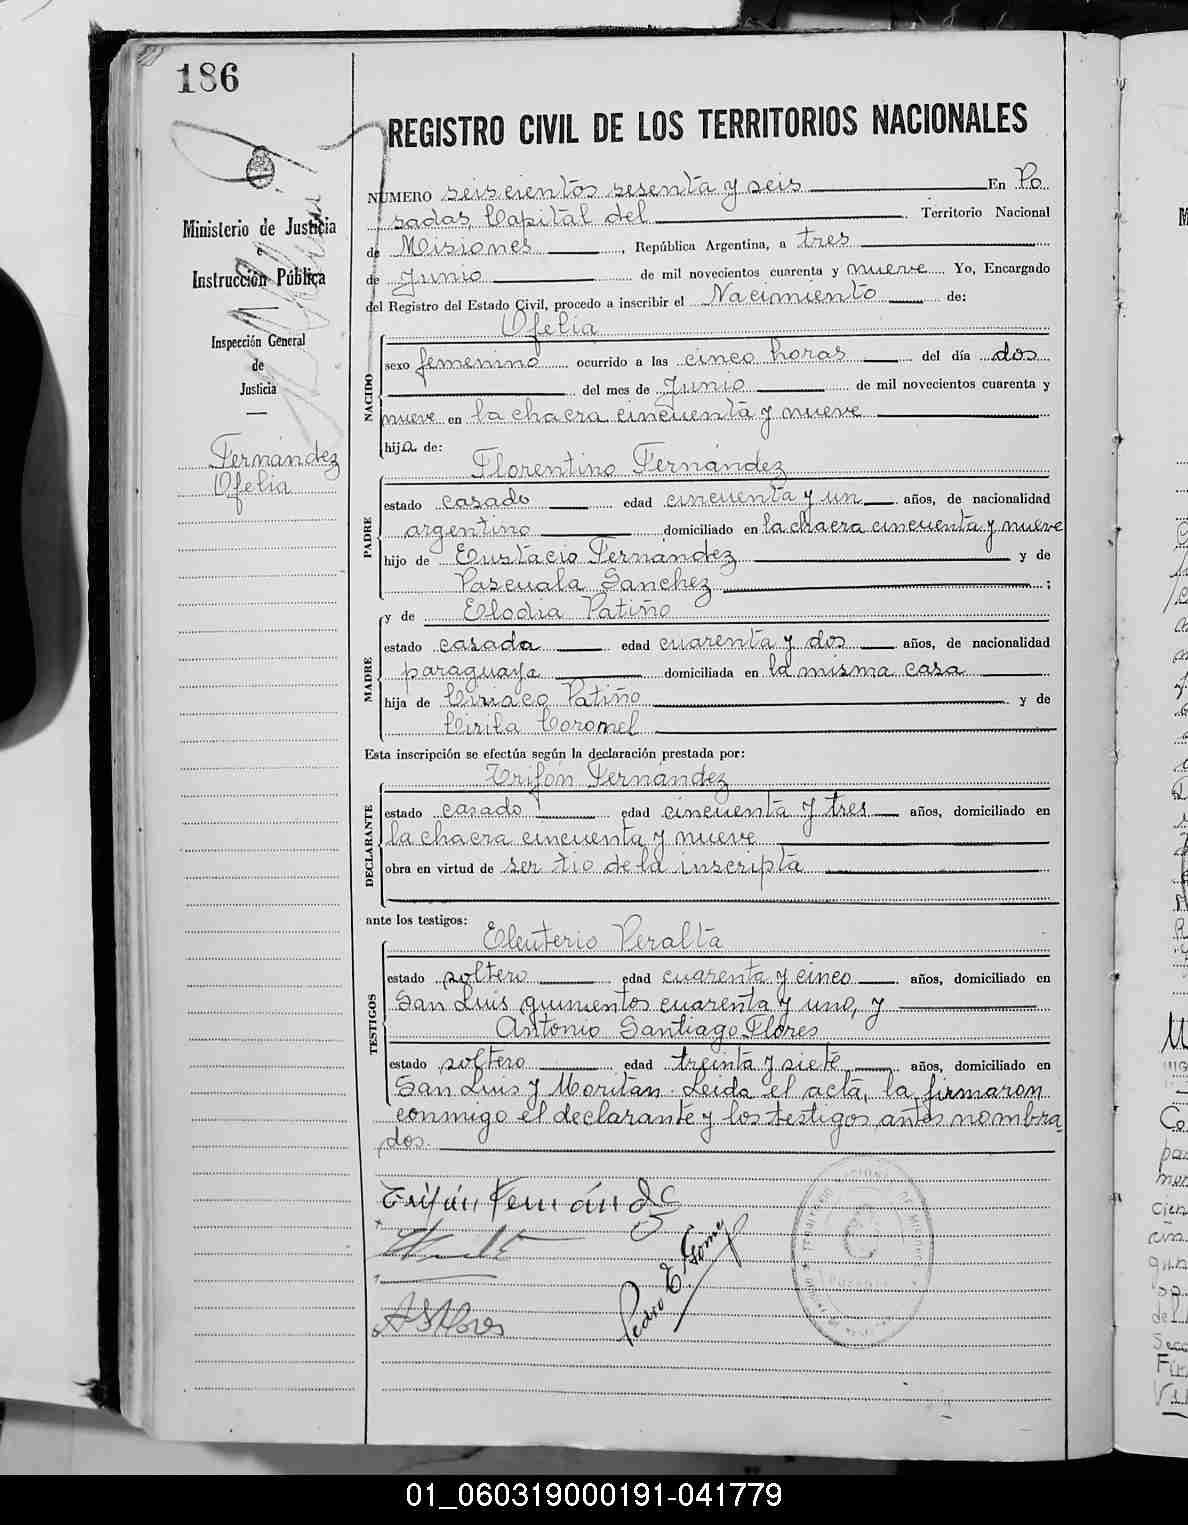 186
REGISTRO CIVIL DE LOS TERRITORIOS NACIONALES
Ministerio de Justicia
e
Instrucción Pública
Inspección General
de
Justicia
Fernández
Ofelia
NÚMERO seiscientos sesenta y seis En Po
sadas, Capital del Territorio Nacional
de Misiones, República Argentina, a tres
de Junio de mil novecientos cuarenta y nueve Yo, Encargado
del Registro del Estado Civil, procedo a inscribir el Nacimiento de:
NACIDO
Ofelia
sexo femenino ocurrido a las cinco horas del día dos
del mes de Junio de mil novecientos cuarenta y
nueve en la chacra cincuenta y nueve
hija de:
PADRE
Florentino Fernández
estado casado edad cincuenta y un años, de nacionalidad
argentino domiciliado en la chacra cincuenta y nueve
hijo de Eustacio Fernandez y de
Pascuala Sanchez ;
MADRE
y de Elodia Patiño
estado casada edad cuarenta y dos años, de nacionalidad
paraguaya domiciliada en la misma casa
hija de Ciriaco Patiño y de
Cirila Coronel
Esta inscripción se efectúa según la declaración prestada por:
DECLARANTE
Trifón Fernández
estado casado edad cincuenta y tres años, domiciliado en
la chacra cincuenta y nueve
obra en virtud de ser tio de la inscripta
ante los testigos:
TESTIGOS
Eleuterio Peralta
estado soltero edad cuarenta y cinco años, domiciliado en
San Luis quinientos cuarenta y uno, y
Antonio Santiago Flores
estado soltero edad treinta y siete años, domiciliado en
San Luis y Moritán. Leida el acta, la firmaron
conmigo el declarante y los testigos antes nombra
dos.
Trifón Fernández
Pedro E. Gomez
A S Flores
01_060319000191-041779